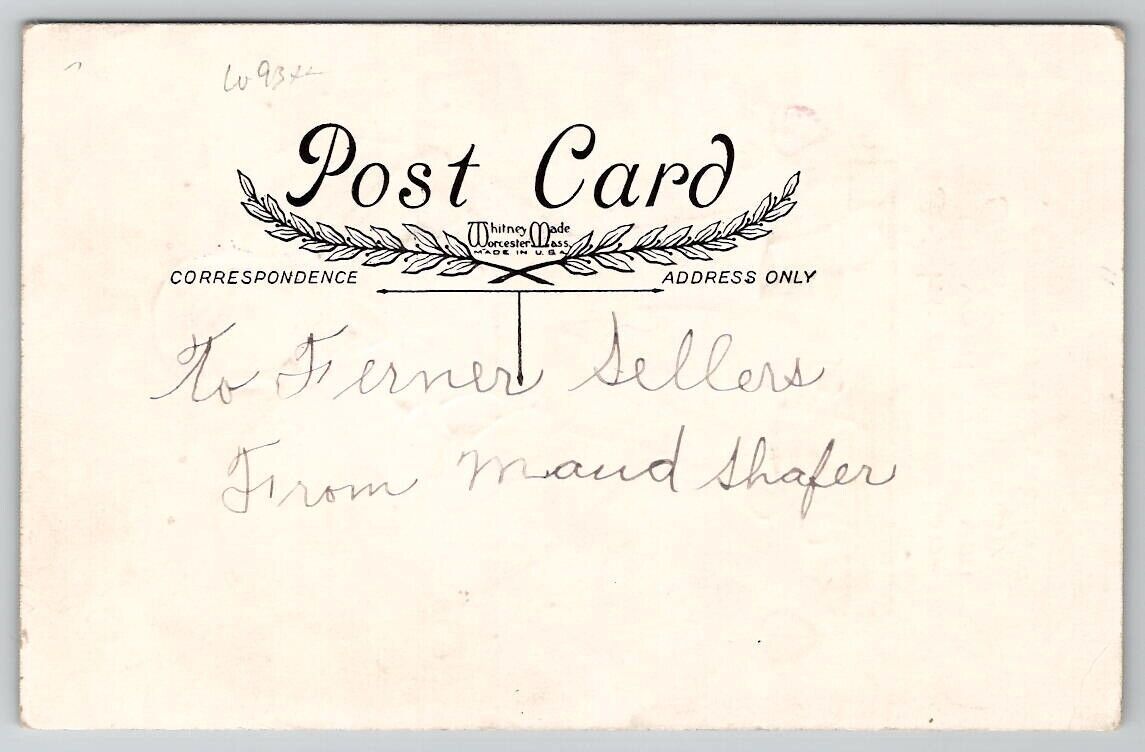 Post Card
Whitney Made
Worcester Mass.
MADE IN U.S.A.
CORRESPONDENCE ADDRESS ONLY
To Ferner Sellers
From Maud Shafer